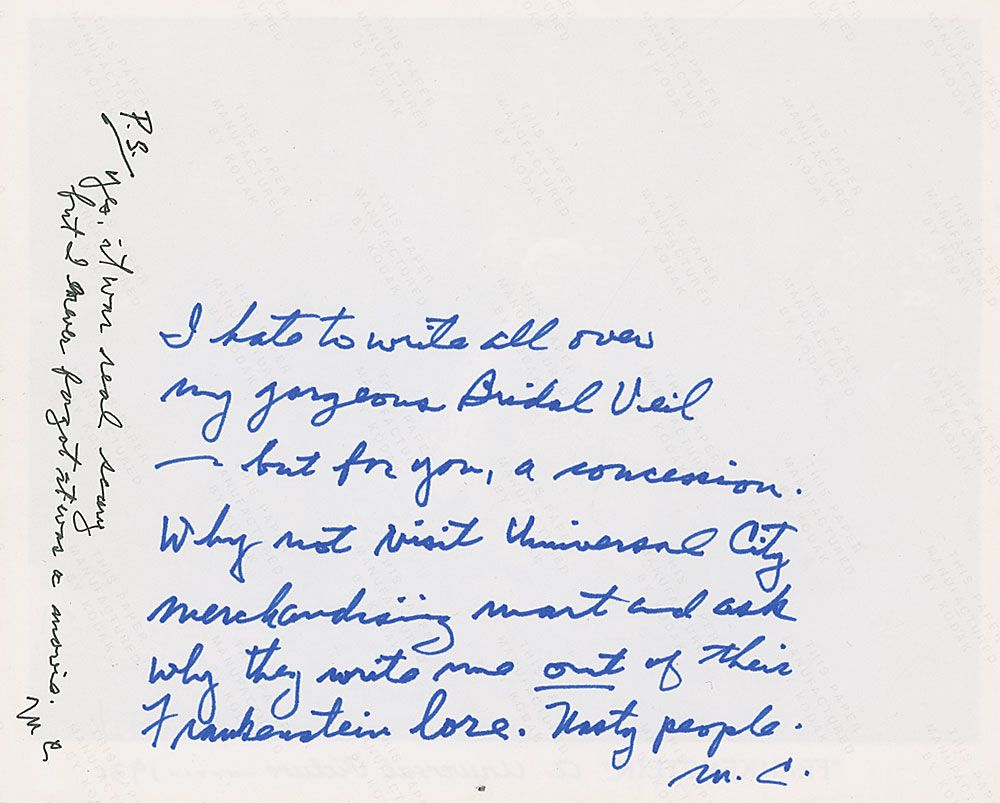 I hate to write all over
my gorgeous Bridal Veil
— but for you, a concession.
Why not visit Universal City
merchandising mart and ask
why they write me out of their
Frankenstein lore. Nasty people.
M. C.
P.S. Yes, it was real scary
but I never forgot it was a movie.
M C
THIS PAPER
MANUFACTURED
BY KODAK